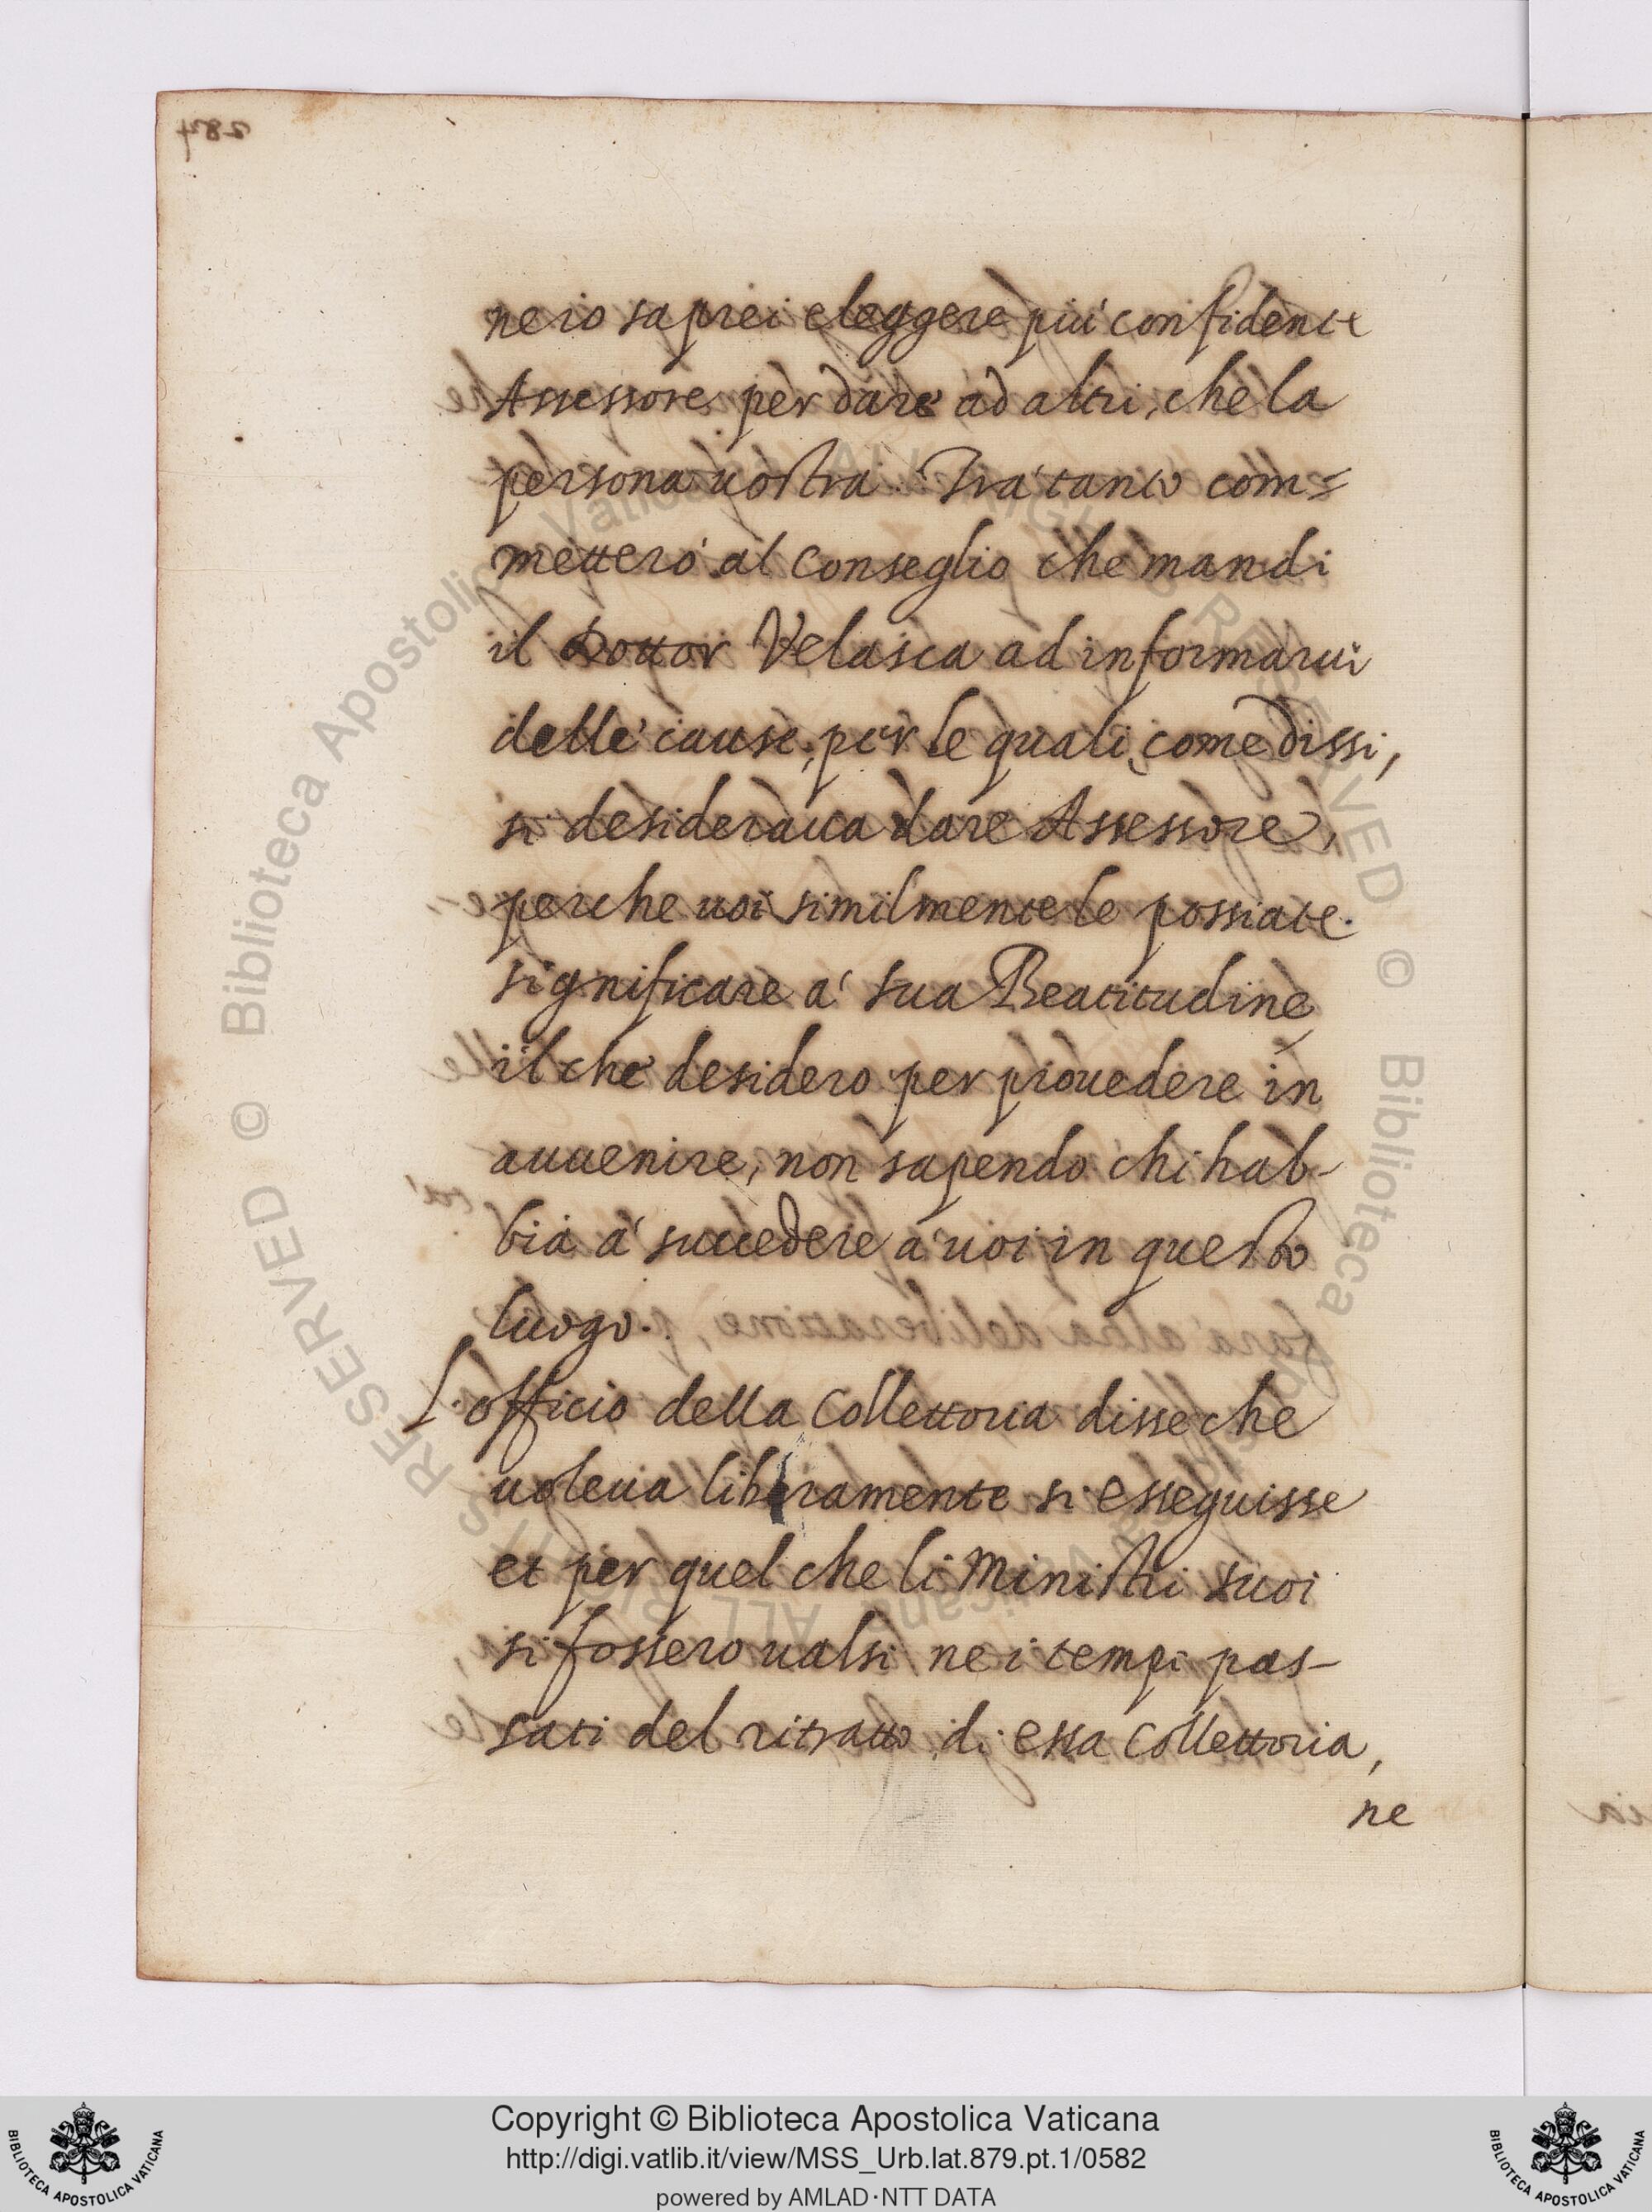 ne io saprei eleggere più confidente
Assessore per dare ad altri, che la
persona uostra. Tra tanto com=
metterò al Conseglio che mandi
il Dottor Velasca ad informarui
delle cause, per le quali, come dissi,
si desideraua dare Assessore,
perche uoi similmente le possiate
significare a' sua Beatitudine
il che desidero per prouedere in
auuenire, non sapendo chi hab-
bia a' succedere a' uoi in questo
luogo.
L'officio della Collettoria disse che
uoleua liberamente si esseguisse
et per quel che li Ministri suoi
si fossero ualsi ne i tempi pas-
sati del ritratto di essa Collettoria,
ne
Copyright © Biblioteca Apostolica Vaticana
http://digi.vatlib.it/view/MSS_Urb.lat.879.pt.1/0582
powered by AMLAD·NTT DATA
BIBLIOTECA APOSTOLICA VATICANA
BIBLIOTECA APOSTOLICA VATICANA